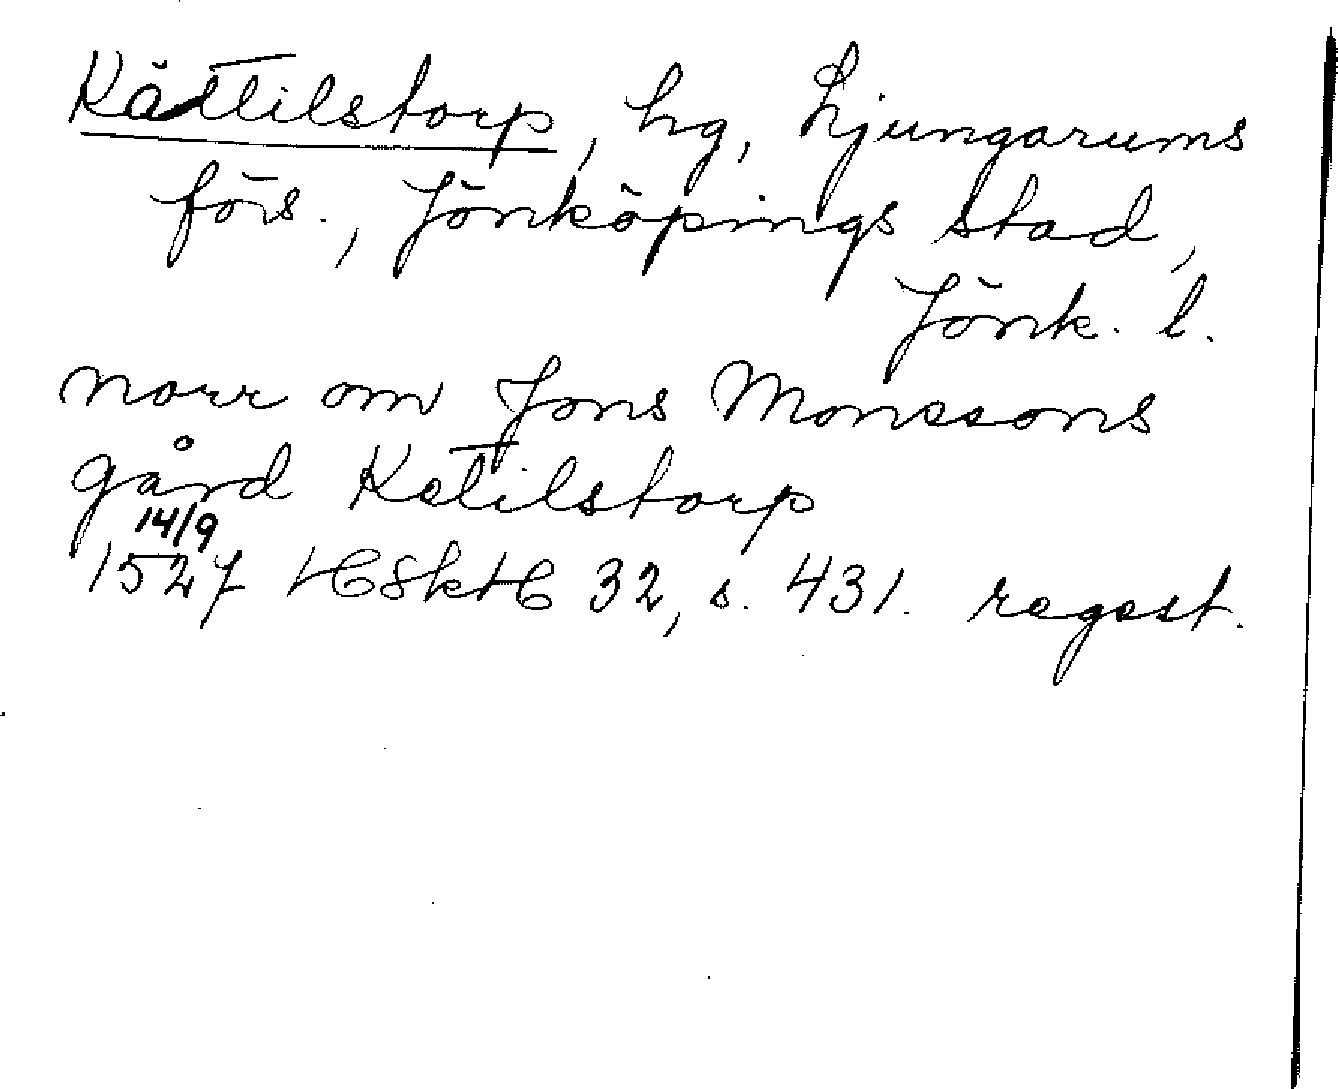 Kättilstorp, hg, Ljungarums
förs., Jönköpings stad,
Jönk. l.
norr om Jons Monssons
gård Ketilstorp
14/9
1527 HSH 32, s. 431. regest.